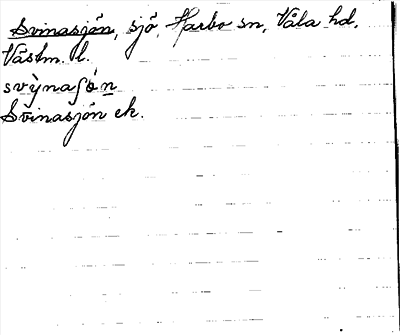 Svinasjön, sjö, Harbo sn, Våla hd,
Västm. l.
svỳnaʃó̀n
Svinasjön ek.